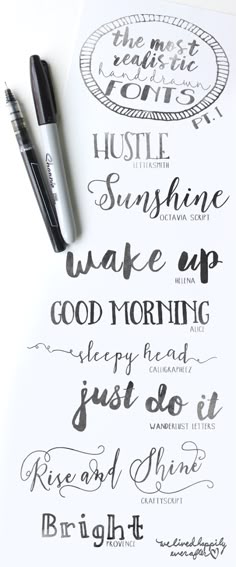 the most
realistic
handdrawn
FONTS
PT. 1
Sharpie
HUSTLE
LETTERSMITH
Sunshine
OCTAVIA SCRIPT
wake up
HELENA
GOOD MORNING
ALICE
sleepy head
CALLIGRAPHEZ
just do it
WANDERLUST LETTERS
Rise and Shine
CRAFTSCRIPT
Bright
PROVENCE
we lived happily
ever after